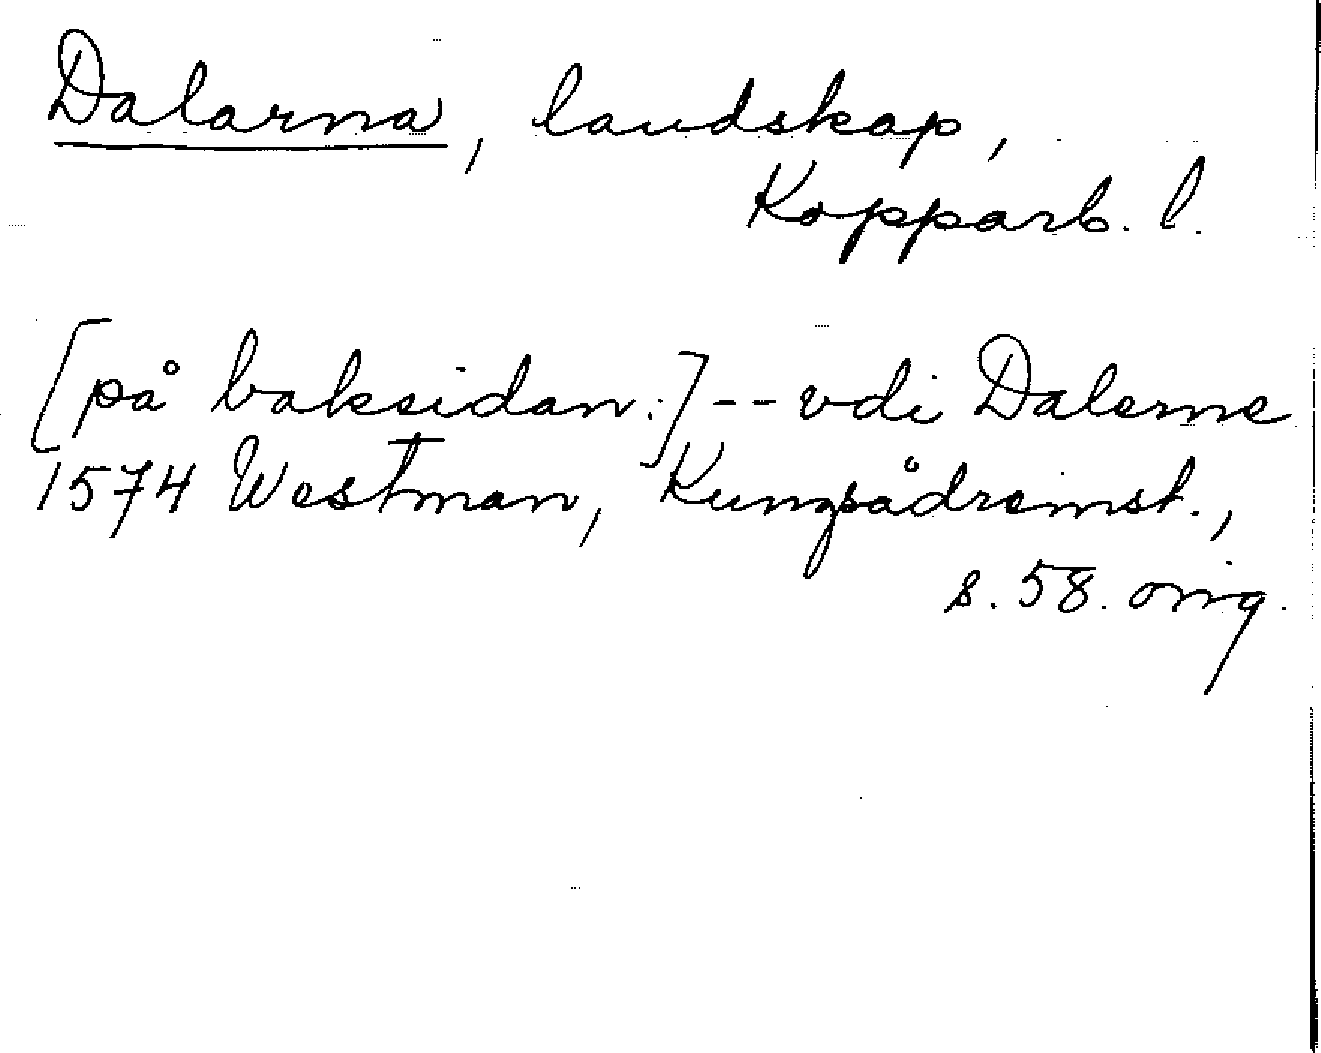 Dalarna, landskap,
Kopparb. l.
[på baksidan:] -- vdi Dalerne
1574 Westman, Kungsådremst.,
s. 58. orig.